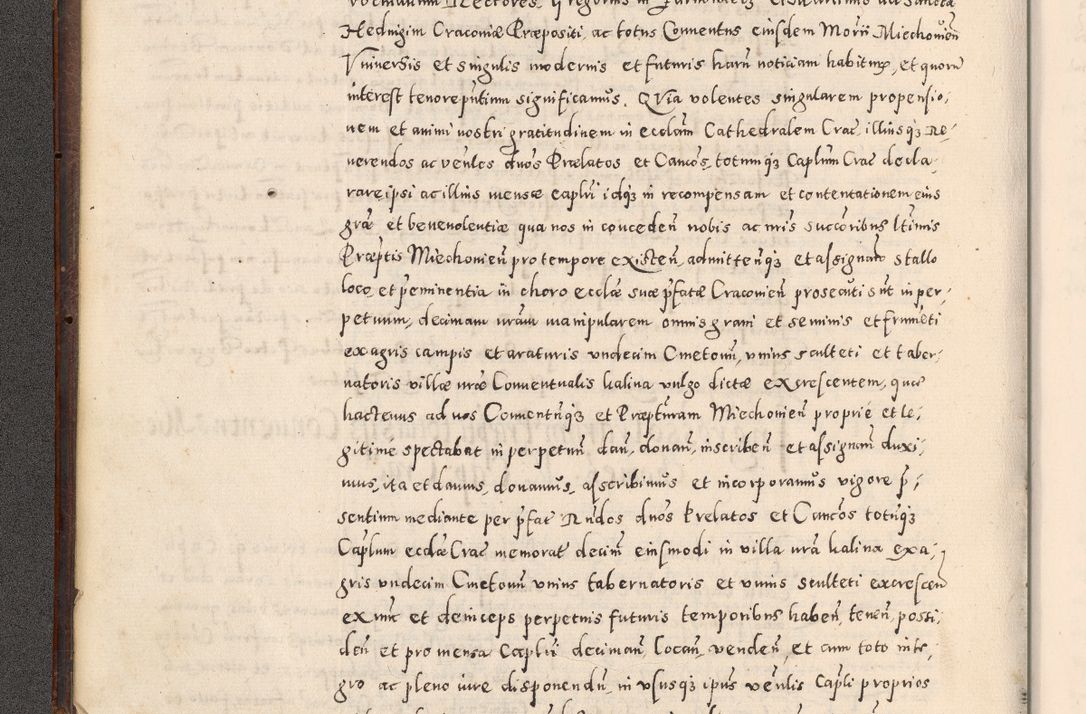 Heduigim Cracouiæ Præpositi, ac totus Conuentus eiusdem Morii Miechouien̄
Vniuersis et singulis modernis et futuris harū noticiam habituris, et quorū
interest tenore p̄ntium significamus. QVia volentes singularem propensio,
nem et animi nostri gratitudinem in ecclam̄ Cathedralem Crac̄ illiusq3 Re,
uerendos ac ven̄les dn̄os Prælatos et Can̄cos, totumq3 Caplūm Crac̄ decla,
rare, ipsi ac illius mensæ caplr̄i idq3 in recompensam et contentationem eius
gr̄æ et beneuolentiæ qua nos in conceden̄ nobis ac nr̄is succōribus ltīmis
Præp̄tis Miechouien̄ pro tempore existen̄, admitten̄q3 et assignan̄ stallo
loco, et p̄eminentia in choro ecclæ suæ p̄fatæ Cracouien̄ prosecuti sūt in per,
petuum, decimam nr̄am manipularem omnis grani et seminis et frumēti
ex agris campis et araturis vndecim Cmetonū, vnius sculteti et taber,
natoris villæ nr̄æ Conuentualis kalina vulgo dictæ excrescentem, quæ
hactenus ad nos Conuentūq3 et Præptūram Miechouien̄ proprie et le,
gitime spectabat in perpetuū dan̄, donan̄, inscriben̄ et assignan̄ duxi,
mus, ita et damus, donamus, asscribimus et incorporamus vigore p̄,
sentium mediante per p̄fat̄ Rn̄dos dn̄os Prelatos et Can̄cos totūq3
Caplūm ecclæ Crac̄ memorat̄ decimā eiusmodi in villa nr̄a kalina ex a,
gris vndecim Cmetonū vnius tabernatoris et vnius sculteti excrescen̄
ex nunc et deinceps perpetuis futuris temporibus haben̄, tenen̄, possi,
den̄ et pro mensa Caplri̅ decimam̄, locan̄, venden̄, et cum toto inte,
gro ac pleno iure disponendū, in vsusq3 ipūs ven̄lis Capli̅ proprios